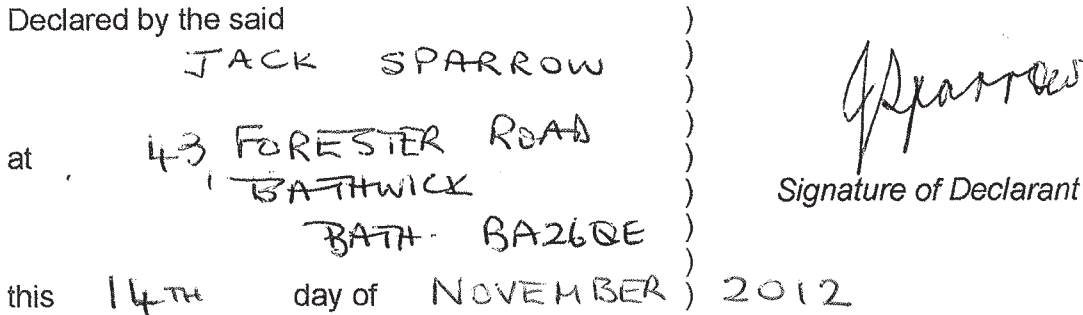 Declared by the said )
JACK SPARROW )
)
)
at 43, FORESTER ROAD )
BATHWICK )
BATH. BA26QE )
)
this 14TH day of NOVEMBER ) 2012
J Sparrow
Signature of Declarant